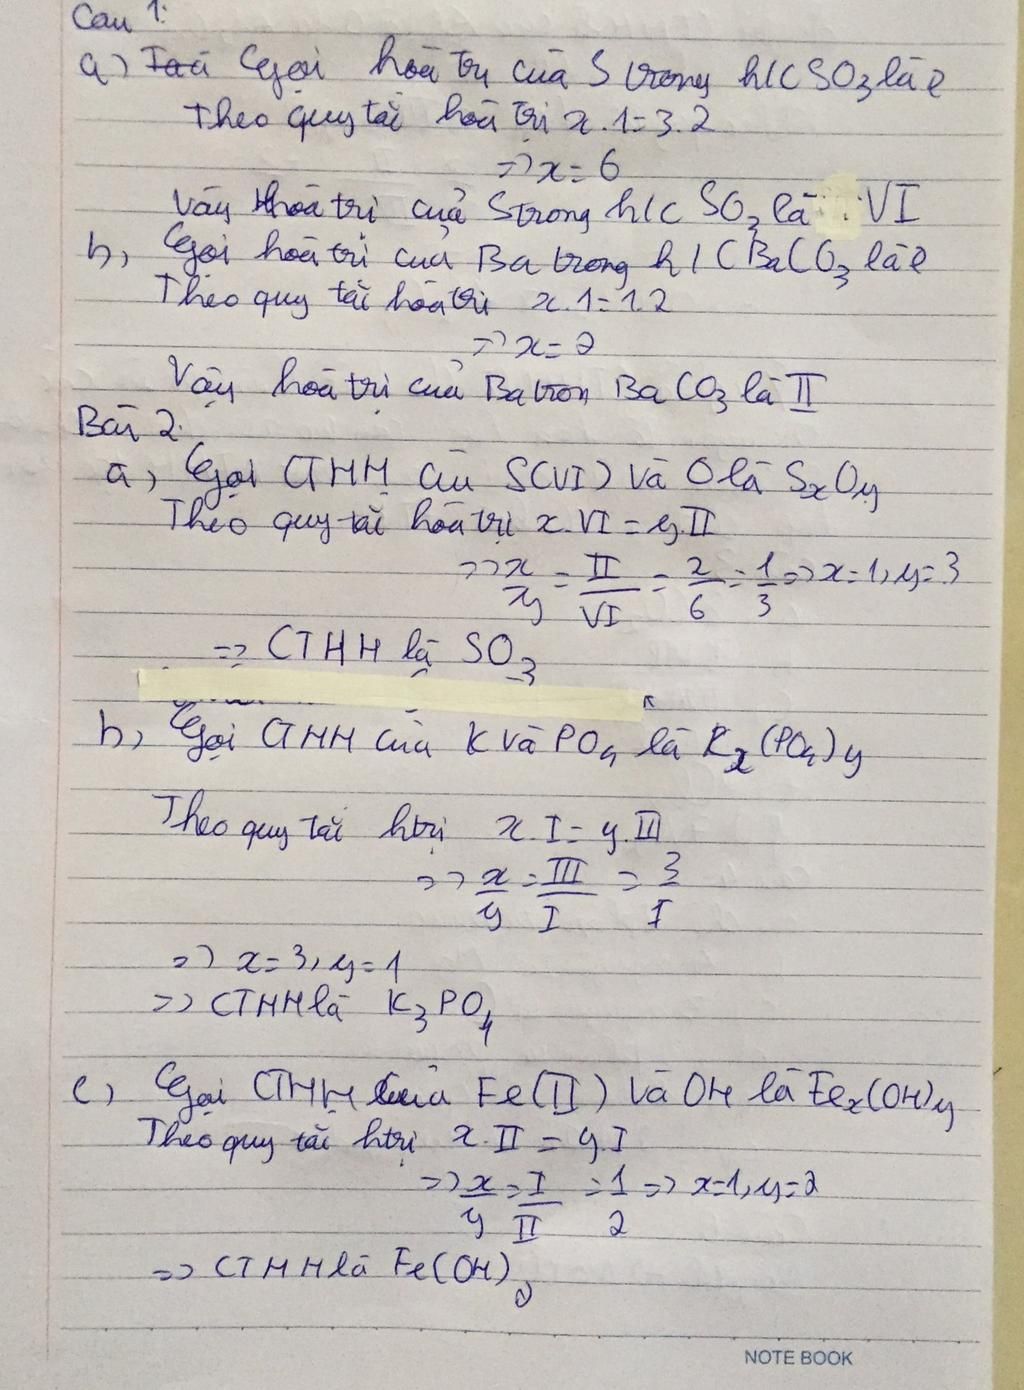 Câu 1:
a) Gọi hoá trị của S trong h/c SO3 là x
Theo quy tắc hoá trị x.1=3.2
=> x=6
Vậy hoá trị của S trong h/c SO3 là VI
b, Gọi hoá trị của Ba trong h/c BaCO3 là x
Theo quy tắc hoá trị x.1=1.2
=> x=2
Vậy hoá trị của Ba tron BaCO3 là II
Bài 2.
a, Gọi CTHH của S(VI) và O là SxOy
Theo quy tắc hoá trị x.VI=y.II
=> x/y = II/VI = 2/6 = 1/3 => x=1, y=3
=> CTHH là SO3
b, Gọi CTHH của K và PO4 là Kx(PO4)y
Theo quy tắc htrị x.I=y.III
=> x/y = III/I = 3/I
=> x=3, y=1
=> CTHH là K3PO4
c) Gọi CTHH của Fe(II) và OH là Fex(OH)y
Theo quy tắc htrị x.II=y.I
=> x/y = I/II = 1/2 => x=1, y=2
=> CTHH là Fe(OH)2
NOTE BOOK